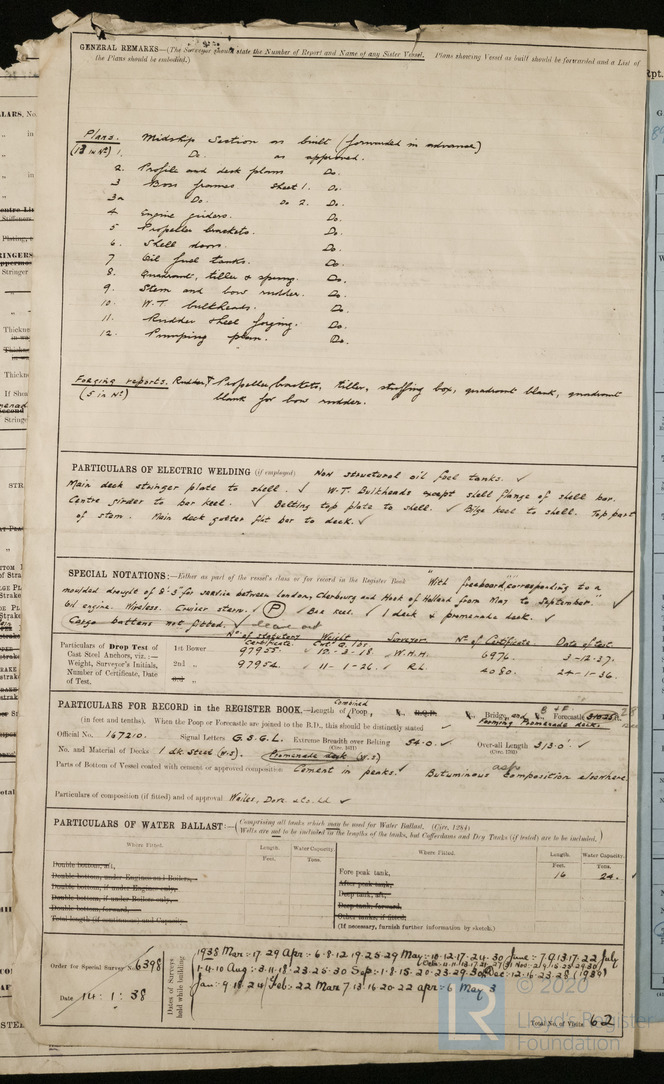 GENERAL REMARKS—(The Surveyor should state the Number of Report and Name of any Sister Vessel. Plans showing Vessel as built should be forwarded and a List of
the Plans should be embodied.)
Plans. Midship Section as built (forwarded in advance)
(13 in No) 1. Do. as approved.
2. Profile and deck plans Do.
3 Boss frames sheet 1. Do.
3a Do. Do 2. Do.
4 Engine girders. Do.
5 Propeller brackets. Do.
6. Shell doors. Do.
7 Oil fuel tanks. Do.
8. Quadrant, tiller & spring. Do.
9. Stem and bow rudder. Do.
10. W.T. bulkheads. Do.
11. Rudder & heel forging. Do.
12. Pumping plan. Do.
Forging reports. Rudder, Propeller brackets, tiller, stuffing box, quadrant blank, quadrant
(5 in No) blank for bow rudder.
PARTICULARS OF ELECTRIC WELDING (if employed) Non structural oil fuel tanks. ✓
Main deck stringer plate to shell. ✓ W.T. Bulkheads except shell flange of shell bar.
Centre girder to bar keel. ✓ Belting top plate to shell. ✓ Bilge keel to shell. Top part
of stem. Main deck gutter flat bar to deck. ✓
SPECIAL NOTATIONS:—Either as part of the vessel's class or for record in the Register Book "With freeboard corresponding to a
moulded draught of 8'-3" for service between London, Cherbourg and Hook of Holland from May to September." ✓
Oil engine. Wireless. Cruiser stern. ✓ (P) ✓ Bar Keel. ✓ 1 deck & promenade deck. ✓
Cargo battens not fitted. ✓
No of Statutory Certificate Weight Cwt. Q. lbs. Surveyor No of Certificate. Date of test
Particulars of Drop Test of
Cast Steel Anchors, viz.:—
Weight, Surveyor's Initials,
Number of Certificate, Date
of Test.
1st Bower 97955. ✓ 12 - 1 - 18 ✓ W.H.H. 6976 3-12-37.
2nd „ 97954. ✓ 11 - 1 - 26. ✓ R.L. 4080. 24-1-36.
3rd „
PARTICULARS FOR RECORD in the REGISTER BOOK.—Length of Combined Poop, ft., R.Q.D. ft., Bridge, and B & F ft., Forecastle ft.
(in feet and tenths). When the Poop or Forecastle are joined to the B.D., this should be distinctly stated ✓ Forming Promenade deck.
Official No. 167210. Signal Letters G.S.G.L. Extreme Breadth over Belting 54.0 ✓ Over-all Length 313.0' ✓
No. and Material of Decks 1 dk. Steel (W.S) Promenade deck (W.S)
Parts of Bottom of Vessel coated with cement or approved composition Cement in peaks. ✓ Butuminous composition elsewhere
Particulars of composition (if fitted) and of approval Wailes, Dove
PARTICULARS OF WATER BALLAST:—(Comprising all tanks which may be used for Water Ballast. (Circ. 1284)
Wells are not to be included in the lengths of the tanks, but Cofferdams and Dry Tanks (if tested) are to be included.)
Where Fitted. Length. Water Capacity. Where Fitted. Length. Water Capacity.
Feet. Tons. Feet. Tons.
Double bottom, aft,
Double bottom, under Engines and Boilers,
Double bottom, if under Engines only,
Double bottom, if under Boilers only,
Double bottom, forward,
Total length (if continuous) and Capacity
Fore peak tank, 16 24. ✓
After peak tank,
Deep tank, aft,
Deep tank, forward,
Other tanks, if fitted,
(If necessary, furnish further information by sketch.)
Order for Special Survey No. 6398
Date 14 : 1 : 38
Dates of Surveys held while building
1938 Mar:- 17 29 Apr:- 6.8.12 19.25.29 May:- 10.12.17.24.30 June:- 7.9.13.17.22 July
1.4.10 Aug:- 3.11.18.23.25.30 Sep:- 1.8.15.20.23.29.30 Dec:- 12.16.23.28 (1939)
Jan:- 9 18 24 Feb:- 22 Mar 7 13 16 20 22 Apr:- 6 May 3
Total No. of Visits 62
© 2020
LR
Lloyd's Register
Foundation